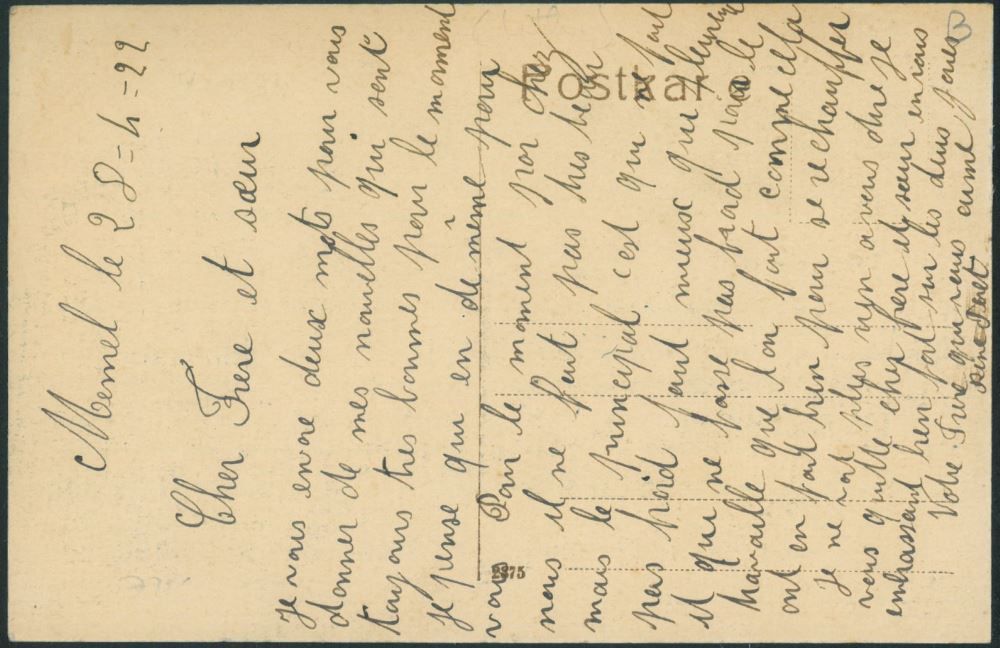 Memel le 28=4=22
Cher Frere et sœur
je vous envoie deux mots pour vous
donner de mes nouvelles qui sont
toujours tres bonnes pour le moment
je pense qui en de même pour
vous Pour le moment por chez
nous il ne fait pas tres beau
mais le principal cest qui ne fait
pas froid faut mieux qui pleuve
et que ne fasse pas froid pour le
travaille que lon fait comme cella
ont en fait bien pour se rechauffer
je ne voit plus rien a vous dire je
vous quitte cher frere et sœur en vous
embrassant bien fort sur les deux joues
Votre Frere qui vous aime
Postkarte
2375